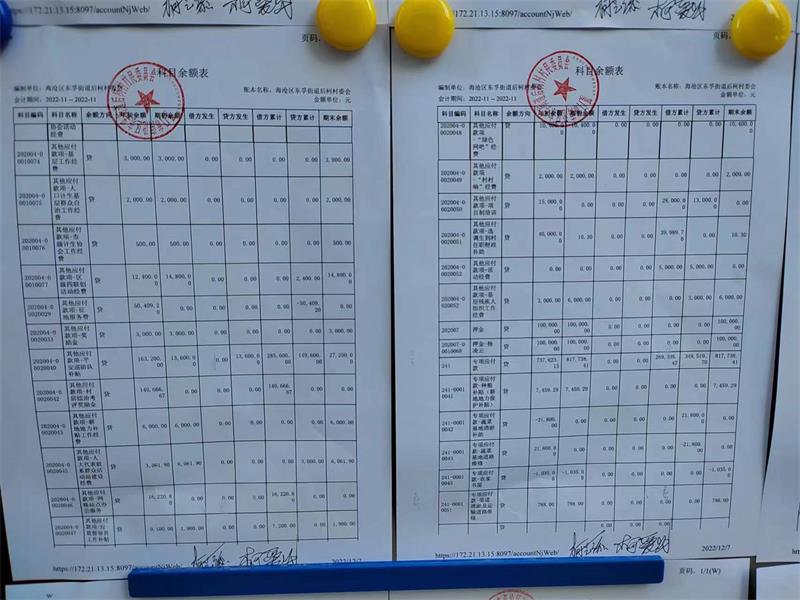 https://172.21.13.15:8097/accountNjWeb/
15:8097/accountNjWeb/
页码:
科目余额表
编制单位: 海沧区东孚街道后柯村委会
账本名称: 海沧区东孚街道后柯村委会
会计期间: 2022-11--2022-11
金额单位: 元
科目编码 科目名称 余额方向 年初余额 期初余额 借方发生 贷方发生 借方累计 贷方累计 期末余额
协会活动经费
202004-00010074 其他应付款项-基层工作经费 贷 3,000.00 3,000.00 0.00 0.00 0.00 0.00 3,000.00
202004-00010075 其他应付款项-人口计生基层群众自治工作经费 贷 2,000.00 2,000.00 0.00 0.00 0.00 0.00 2,000.00
202004-00010076 其他应付款项-市级计生协会工作经费 贷 500.00 500.00 0.00 0.00 0.00 0.00 500.00
202004-00010077 其他应付款项-区级四联创活动经费 贷 12,400.00 14,800.00 0.00 0.00 0.00 2,400.00 14,800.00
202004-00020029 其他应付款项-征地服务费 贷 50,409.20 0.00 0.00 0.00 0.00 -50,409.20 0.00
202004-00020033 其他应付款项-奖励金 贷 3,000.00 3,000.00 0.00 0.00 0.00 0.00 3,000.00
202004-00020040 其他应付款项-平安巡防队补贴 贷 163,200.00 13,600.00 0.00 13,600.00 285,600.00 149,600.00 27,200.00
202004-00020042 其他应付款项-村居综治考评奖励金 贷 140,666.67 0.00 0.00 0.00 140,666.67 0.00 0.00
202004-00020043 其他应付款项-耕地地力补贴工作经费 贷 6,000.00 6,000.00 0.00 0.00 0.00 0.00 6,000.00
202004-00020045 其他应付款项-人大代表联系群众活动站建设经费 贷 3,061.90 6,061.90 0.00 0.00 0.00 3,000.00 6,061.90
202004-00020046 其他应付款项-网格站点办公服务 贷 16,220.80 0.00 0.00 0.00 16,220.80 0.00 0.00
202004-00020047 贷 1,900.00 0.00 0.00 7,200.00 0.00 1,900.00
https://172.21.13.15:8097/accountNjWeb/
2022/12/7
科目余额表
编制单位: 海沧区东孚街道后柯村委会
账本名称: 海沧区东孚街道后柯村委会
会计期间: 2022-11--2022-11
金额单位: 元
科目编码 科目名称 余额方向 年初余额 期初余额 借方发生 贷方发生 借方累计 贷方累计 期末余额
202004-00020048 其他应付款项-“绿色网吧”经费 贷 10,400.00 10,400.00 0.00 0.00 0.00 0.00 10,400.00
202004-00020049 其他应付款项-“村村响”经费 贷 2,000.00 2,000.00 0.00 0.00 0.00 0.00 2,000.00
202004-00020050 其他应付款项-项目制培训 贷 15,000.00 0.00 0.00 0.00 28,000.00 13,000.00 0.00
202004-00020051 其他应付款项-选调生到村任职财政补助 贷 40,000.00 10.30 0.00 0.00 39,989.70 0.00 10.30
202004-00020052 其他应付款项-活动经费 贷 0.00 0.00 0.00 0.00 5,000.00 5,000.00 0.00
其他应付款项-基层残疾人组织工作经费 贷 3,000.00 6,000.00 0.00 0.00 0.00 3,000.00 6,000.00
202007 押金 贷 100,000.00 100,000.00 0.00 0.00 0.00 0.00 100,000.00
202007-00010068 押金-杨凌云 贷 100,000.00 100,000.00 0.00 0.00 0.00 0.00 100,000.00
241 专项应付款 贷 0.00 0.00
241-00010041 专项应付款-种粮补贴(耕地地力保护补贴) 贷 7,459.29 7,459.29 0.00 0.00 0.00 0.00 7,459.29
241-00010042 专项应付款-蔬菜基地清淤补助 贷 -21,800.00 0.00 0.00 0.00 0.00 21,800.00 0.00
241-00010043 专项应付款-蔬菜基地道路维修 贷 21,800.00 0.00 0.00 0.00 0.00 -21,800.00 0.00
专项应付款-农家书屋 贷 -1,035.00 -1,035.00 0.00 0.00 0.00 0.00 -1,035.00
专项应付款-渠道清淤及运输道路维修 贷 798.00 798.00 0.00 0.00 0.00 0.00 798.00
0.00 0.00 0.00
https://172.21.13.15:8097/accountNjWeb/
2022/12/7
页码: 1/1(W)